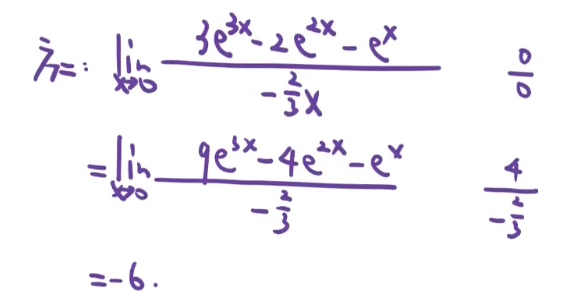 方二: lim x→0 (3e^{3x} - 2e^{2x} - e^x) / (-2/3 x)  0/0
= lim x→0 (9e^{3x} - 4e^{2x} - e^x) / (-2/3)  4 / (-2/3)
= -6.